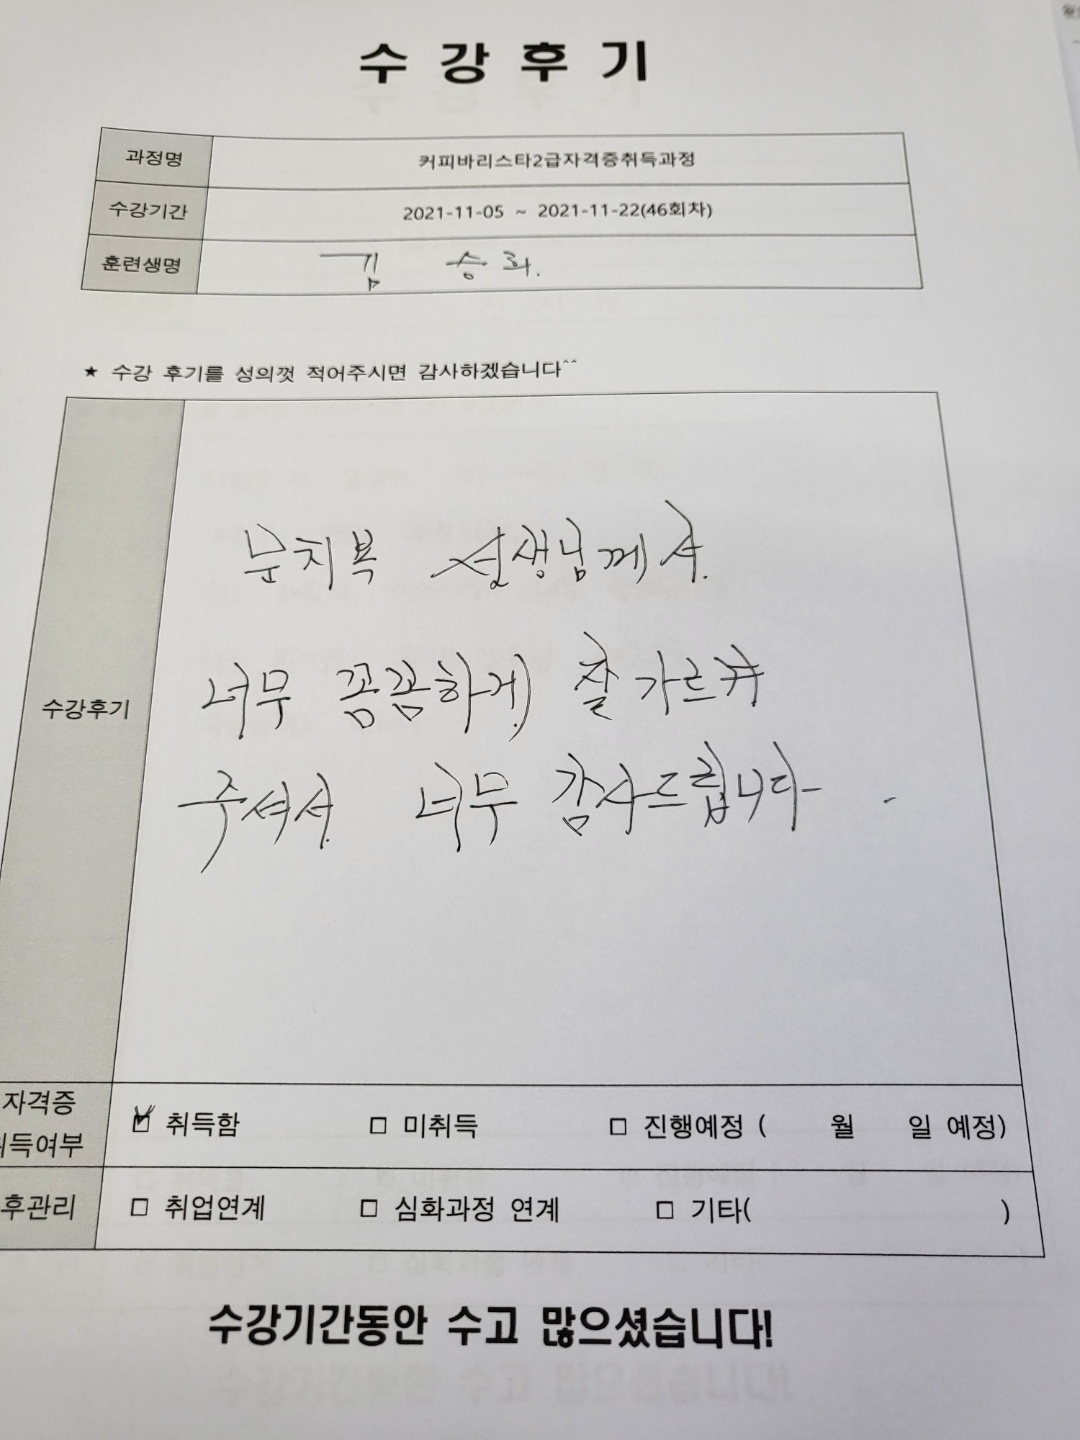 수 강 후 기
과정명 커피바리스타2급자격증취득과정
수강기간 2021-11-05 ~ 2021-11-22(46회차)
훈련생명 김 승희.
★ 수강 후기를 성의껏 적어주시면 감사하겠습니다^^
수강후기
문치복 선생님께서
너무 꼼꼼하게 잘 가르쳐
주셔서 너무 감사드립니다.
자격증
취득여부
취득함 □ 미취득 □ 진행예정 ( 월 일 예정)
후관리 □ 취업연계 □ 심화과정 연계 □ 기타( )
수강기간동안 수고 많으셨습니다!